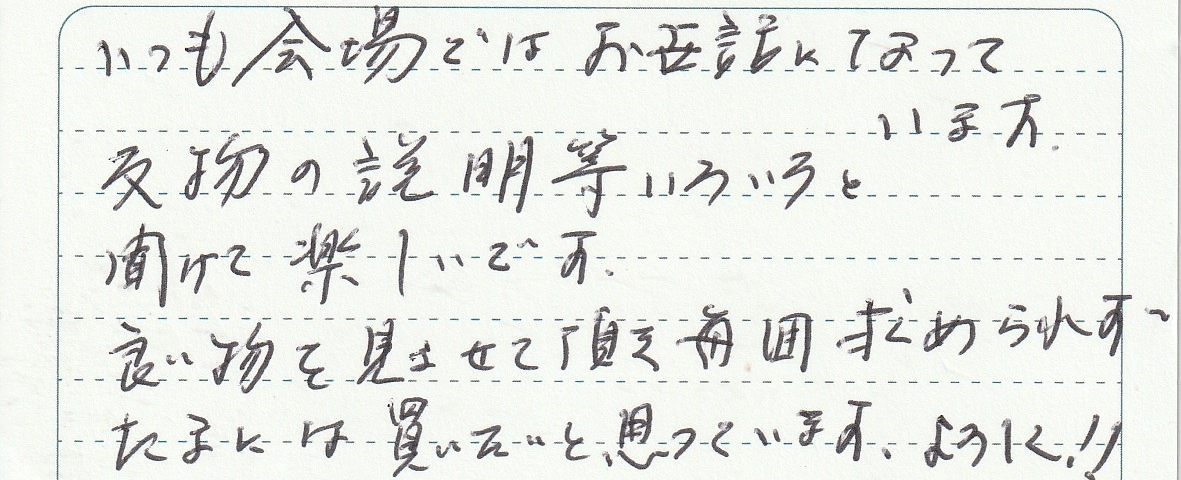 いつも会場ではお世話になって
います.
反物の説明等いろいろと
聞けて楽しいです.
良い物を見させて頂き毎回求められず〜
たまには買いたいと思っています.ように!!